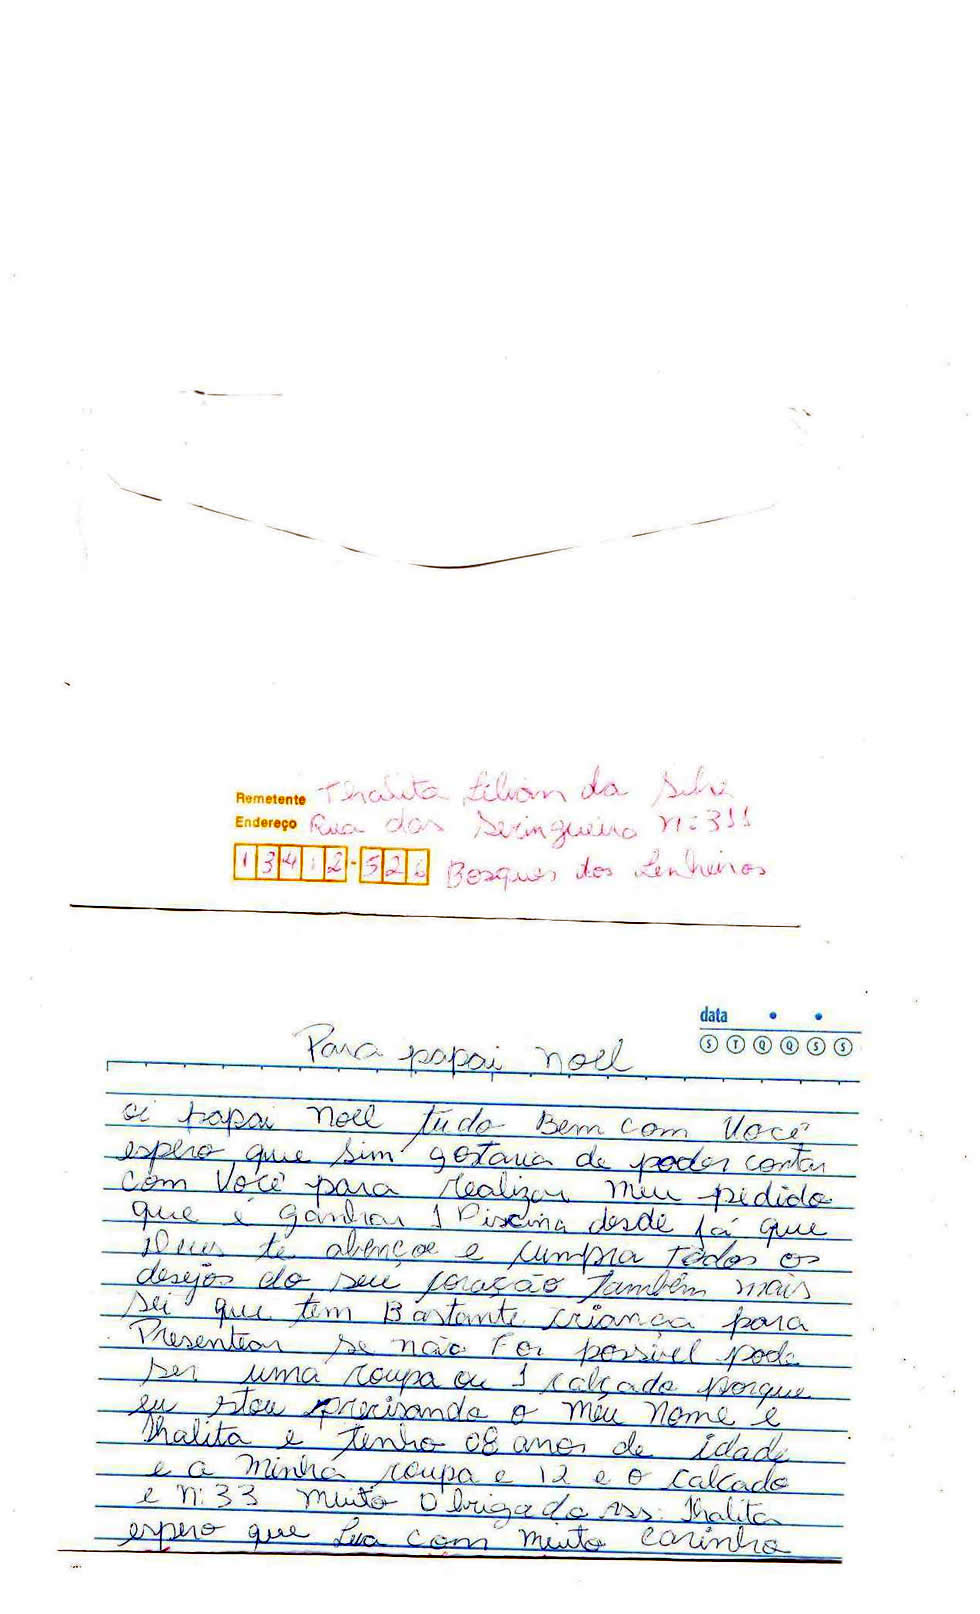 Remetente Thalita Lilian da Silva
Endereço Rua das Seringueira n: 311
13412-526 Bosques dos Lenheiros
data
S T Q Q S S
Para papai noel
oi papai noel tudo Bem com Você
espero que sim gostaria de poder contar
com Você para realizar meu pedido
que é ganhar 1 Piscina desde já que
Deus te abençoe e cumpra todos os
desejos do seu coração também mais
sei que tem Bastante criança para
Presentear se não For possivel pode
ser uma roupa ou 1 calçado porque
eu stou precisando o meu nome e
Thalita e tenho 08 anos de idade
e a minha roupa e 12 e o calcado
e n: 33 muito Obrigado ass: Thalita
espero que Leia com muito carinho